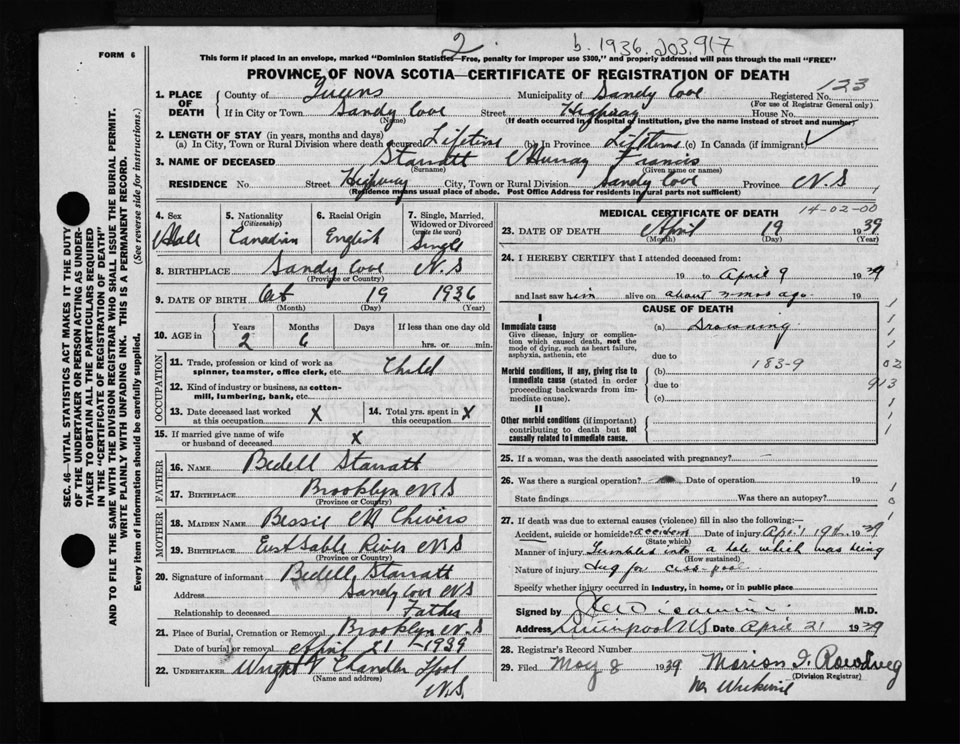 2
b. 1936. 203,917
FORM 6
This form if placed in an envelope, marked "Dominion Statistics—Free, penalty for improper use $300," and properly addressed will pass through the mail "FREE"
PROVINCE OF NOVA SCOTIA—CERTIFICATE OF REGISTRATION OF DEATH
1. PLACE OF DEATH
County of Queens Municipality of Sandy Cove Registered No. 123
(For use of Registrar General only)
If in City or Town Sandy Cove Street Highway House No.
(Name) (If death occurred in a hospital or institution, give the name instead of street and number)
2. LENGTH OF STAY (in years, months and days)
(a) In City, Town or Rural Division where death occurred Lifetime (b) In Province Lifetime (c) In Canada (if immigrant)
3. NAME OF DECEASED Starratt Murray Francis
(Surname) (Given name or names)
RESIDENCE No. Street Highway City, Town or Rural Division Sandy Cove Province N.S
(Residence means usual place of abode. Post Office Address for residents in rural parts not sufficient)
4. Sex Male
5. Nationality (Citizenship) Canadian
6. Racial Origin English
7. Single, Married, Widowed or Divorced (write the word) Single
8. BIRTHPLACE Sandy Cove N.S
(Province or Country)
9. DATE OF BIRTH Oct 19 1936
(Month) (Day) (Year)
10. AGE in Years 2 Months 6 Days If less than one day old hrs. or min.
OCCUPATION
11. Trade, profession or kind of work as spinner, teamster, office clerk, etc. Child
12. Kind of industry or business, as cotton-mill, lumbering, bank, etc.
13. Date deceased last worked at this occupation X
14. Total yrs. spent in this occupation X
15. If married give name of wife or husband of deceased X
FATHER
16. NAME Bedell Starratt
17. BIRTHPLACE Brooklyn N S
(Province or Country)
MOTHER
18. MAIDEN NAME Bessie M Chivers
19. BIRTHPLACE East Sable River N S
(Province or Country)
20. Signature of informant Bedell Starratt
Address Sandy Cove N S
Relationship to deceased Father
21. Place of Burial, Cremation or Removal Brooklyn N.S
Date of burial or removal April 21 - 1939
22. UNDERTAKER Wright Chandler Lpool
(Name and address) N.S
MEDICAL CERTIFICATE OF DEATH
14-02-00
23. DATE OF DEATH April 19 1939
(Month) (Day) (Year)
24. I HEREBY CERTIFY that I attended deceased from:
19 to April 9 1939
and last saw him alive on about 2 mos ago. 19
CAUSE OF DEATH
I
Immediate cause
Give disease, injury or complication which caused death, not the mode of dying, such as heart failure, asphyxia, asthenia, etc
(a) Drowning
due to
Morbid conditions, if any, giving rise to immediate cause (stated in order proceeding backwards from immediate cause).
(b) 183-9
due to
(c)
02
913
II
Other morbid conditions (if important) contributing to death but not causally related to immediate cause.
25. If a woman, was the death associated with pregnancy?
26. Was there a surgical operation? Date of operation 19
State findings Was there an autopsy?
27. If death was due to external causes (violence) fill in also the following:—
Accident, suicide or homicide? accident Date of injury April 19th 1939
(State which)
Manner of injury Tumbled into a hole which was being
(How sustained)
Nature of injury dug for cess-pool
Specify whether injury occurred in industry, in home, or in public place
Signed by M.D.
Address Liverpool N S Date April 21 1939
28. Registrar's Record Number
29. Filed May 8 1939 Marion I.
(Division Registrar)
SEC. 46—VITAL STATISTICS ACT MAKES IT THE DUTY OF THE UNDERTAKER OR PERSON ACTING AS UNDERTAKER TO OBTAIN ALL THE PARTICULARS REQUIRED IN THE "CERTIFICATE OF REGISTRATION OF DEATH" AND TO FILE THE SAME WITH THE DIVISION REGISTRAR WHO SHALL ISSUE THE BURIAL PERMIT.
WRITE PLAINLY WITH UNFADING INK. THIS IS A PERMANENT RECORD.
Every item of information should be carefully supplied. (See reverse side for instructions.)